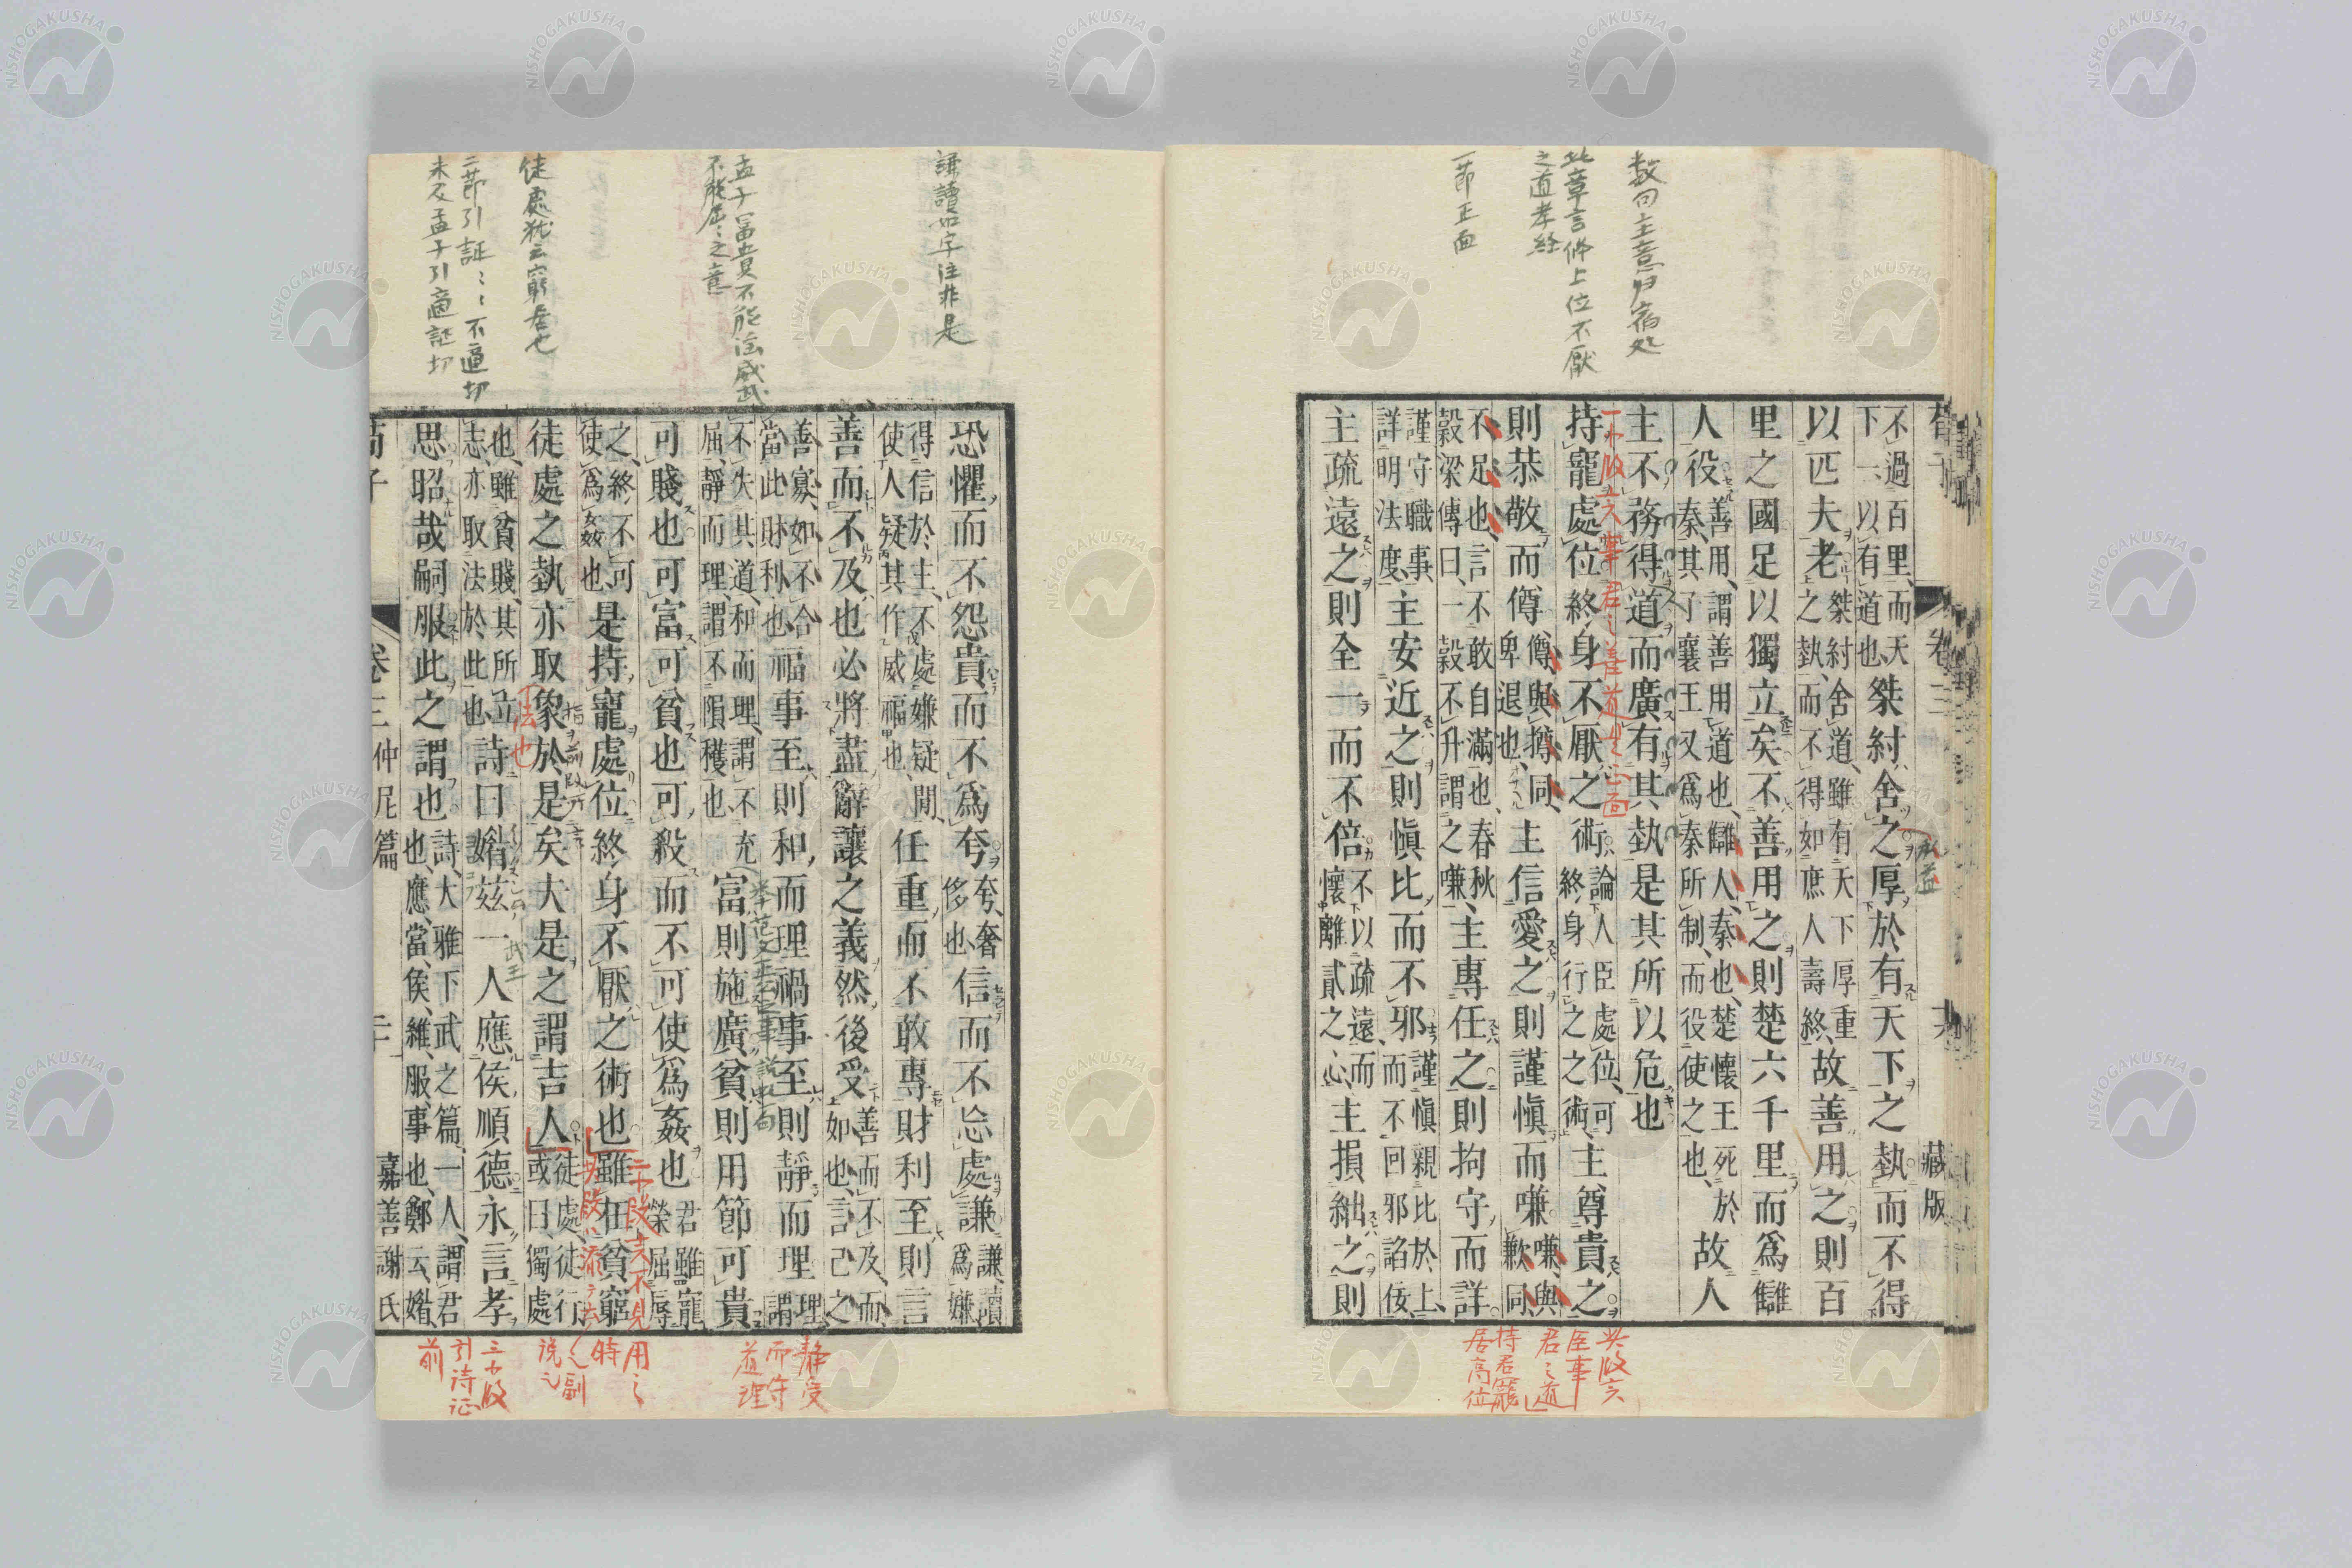 数句主意归宿処
此章言修上位不厭
之道孝経
一節正面
荀子 卷三 藏版
不過百里、而天下一、以有道也桀紂舍之厚於有天下之埶而不得
以匹夫老桀紂舍道、雖有天下厚重之埶、而不得如庶人壽終、故善用之則百
里之國足以獨立矣不善用之則楚六千里而爲讎
人役善用、謂善用道也、讎人、秦也、楚懷王死於秦、其子襄王又爲秦所制、而役使之也、故人
主不務得道而廣有其埶是其所以危也
持寵處位終身不厭之術論人臣處位、可終身行之之術、主尊貴之
則恭敬而僔僔與撙同、卑退也、主信愛之則謹愼而嗛嗛與歉同、
不足也、言不敢自滿也、春秋穀梁傳曰、一穀不升、謂之嗛、主專任之則拘守而詳
謹守職事、詳明法度、主安近之則愼比而不邪謹愼親比於上、而不回邪諂佞
主疏遠之則全一而不倍不以疏遠、而懷離貳之心、主損絀之則
臣事
君之道
持君寵
居高位
謙讀如字注非是
孟子富貴不能淫威武
不能屈之意
徒處犹云窮居也
二節引証〻〻不逼切
未及孟子引適証切
恐懼而不怨貴而不爲夸夸、奢侈也信而不忘處謙謙、讀爲嫌
得信於主、不處嫌疑間、使人疑其作威福也、任重而不敢專財利至則言
善而不及也必將盡辭讓之義然後受善而不及、而、如也、言己之
善寡、如不合當此財利也福事至則和而理禍事至則靜而理理、謂
不失其道、和而理、謂不充屈、靜而理、謂不隕穫也、富則施廣貧則用節可貴
可賤也可富可貧也可殺而不可使爲姦也君雖寵榮屈辱
之、終不可使爲姦也是持寵處位終身不厭之術也雖在貧窮
徒處之埶亦取象於是矣夫是之謂吉人徒處、徒行或曰、獨處
也、雖貧賤、其所立志、亦取法於此也、詩曰媚茲一人應侯順德永言孝
思昭哉嗣服此之謂也詩、大雅下武之篇、一人、謂君也、應、當、侯、維、服、事也、鄭云、媚
荀子 卷三仲尼篇 二十 嘉善謝氏
静受
而守
道理
三小段
引诗证
前